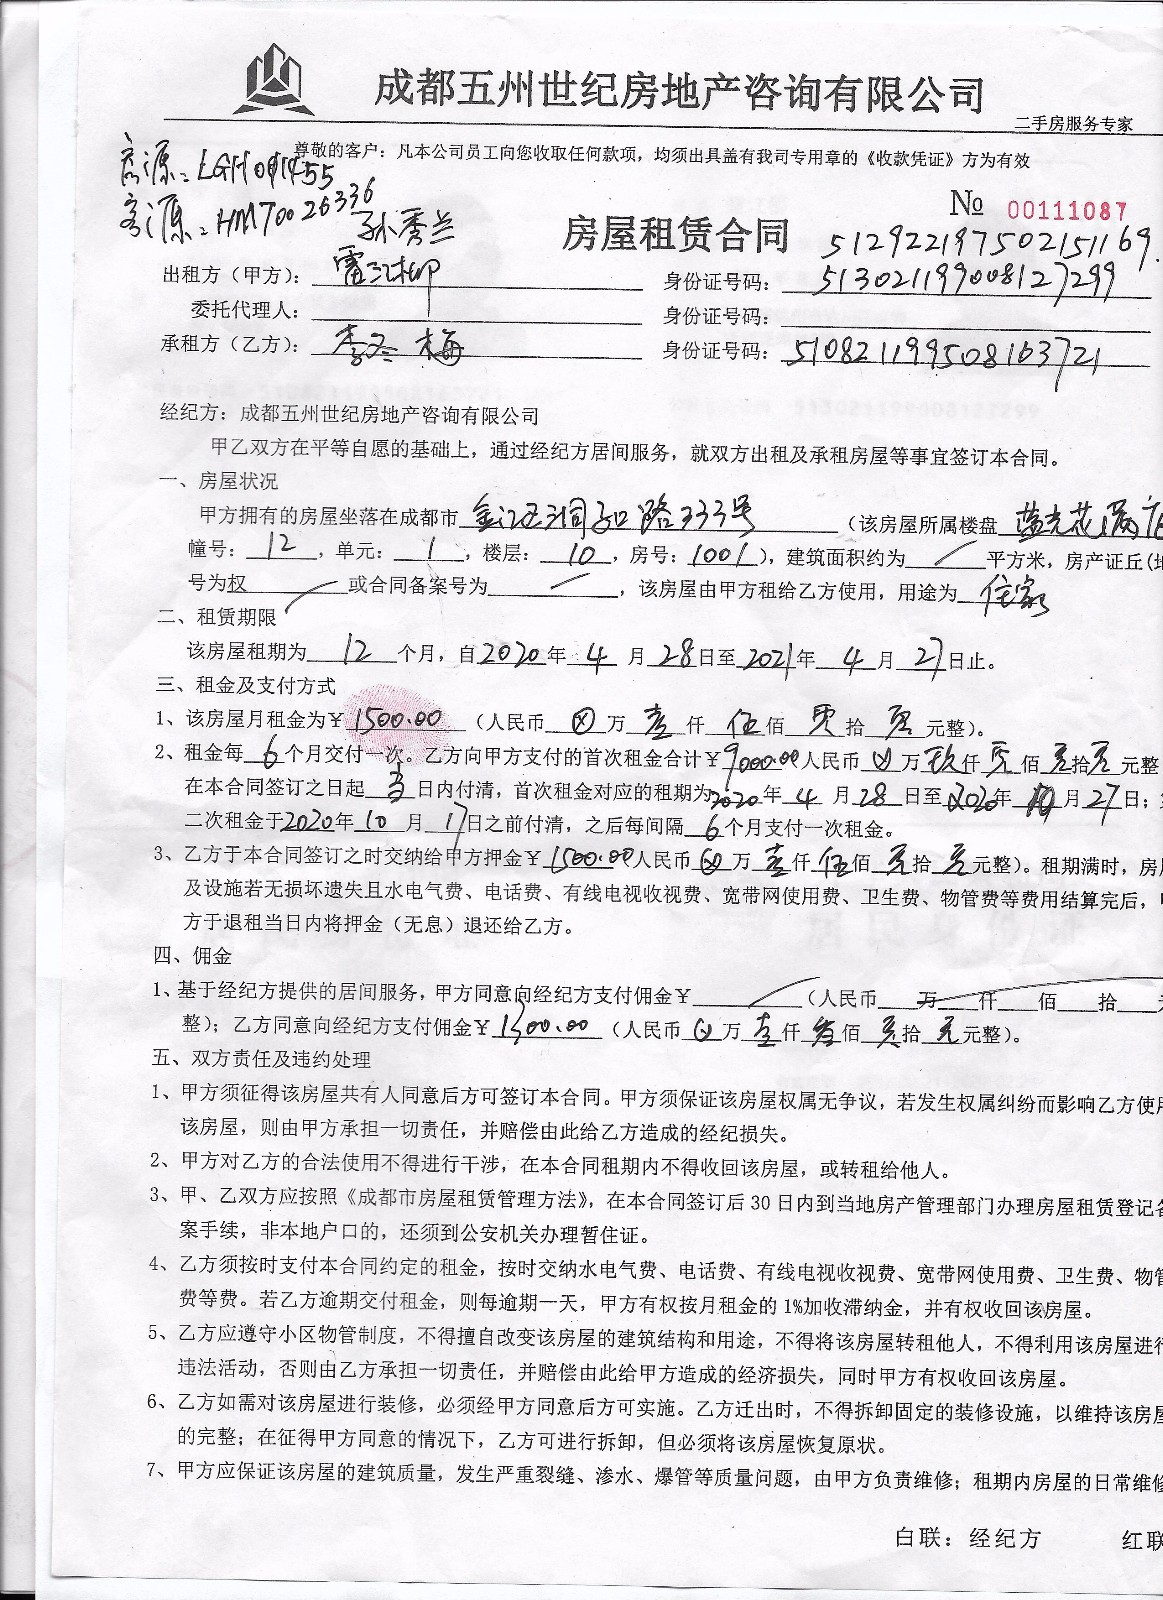 成都五州世纪房地产咨询有限公司
二手房服务专家
尊敬的客户：凡本公司员工向您收取任何款项，均须出具盖有我司专用章的《收款凭证》方为有效
房源：LGH091455
客源：HM70026336
孙秀兰
№ 00111087
房屋租赁合同
512922197502151169.
出租方（甲方）：雷江柳 身份证号码：513021199008127299
委托代理人： 身份证号码：
承租方（乙方）：李冬梅 身份证号码：510821199508163721
经纪方：成都五州世纪房地产咨询有限公司
甲乙双方在平等自愿的基础上，通过经纪方居间服务，就双方出租及承租房屋等事宜签订本合同。
一、房屋状况
甲方拥有的房屋坐落在成都市 洞子口路333号（该房屋所属楼盘 蓝光花满
幢号：12，单元：1，楼层：10，房号：1001），建筑面积约为 平方米，房产证丘(地
号为权 或合同备案号为 ，该房屋由甲方租给乙方使用，用途为 住家
二、租赁期限
该房屋租期为 12 个月，自2020年 4 月 28日至2021年 4 月 27日止。
三、租金及支付方式
1、该房屋月租金为￥1500.00（人民币 万 壹 仟 伍 佰 零 拾 零 元整）。
2、租金每 6 个月交付一次。乙方向甲方支付的首次租金合计￥9000.00人民币 万 玖 仟 零 佰 零 拾 零 元整
在本合同签订之日起 当 日内付清，首次租金对应的租期为2020年 4 月 28 日至2020年 10 月 27日；
二次租金于2020年 10 月 17日之前付清，之后每间隔 6 个月支付一次租金。
3、乙方于本合同签订之时交纳给甲方押金￥1500.00人民币 万 壹 仟 伍 佰 零 拾 零 元整）。租期满时，房屋
及设施若无损坏遗失且水电气费、电话费、有线电视收视费、宽带网使用费、卫生费、物管费等费用结算完后，甲
方于退租当日内将押金（无息）退还给乙方。
四、佣金
1、基于经纪方提供的居间服务，甲方同意向经纪方支付佣金￥ （人民币 万 仟 佰 拾
整）；乙方同意向经纪方支付佣金￥1300.00（人民币 万 壹 仟 叁 佰 零 拾 零 元整）。
五、双方责任及违约处理
1、甲方须征得该房屋共有人同意后方可签订本合同。甲方须保证该房屋权属无争议，若发生权属纠纷而影响乙方使用
该房屋，则由甲方承担一切责任，并赔偿由此给乙方造成的经纪损失。
2、甲方对乙方的合法使用不得进行干涉，在本合同租期内不得收回该房屋，或转租给他人。
3、甲、乙双方应按照《成都市房屋租赁管理方法》，在本合同签订后30日内到当地房产管理部门办理房屋租赁登记备
案手续，非本地户口的，还须到公安机关办理暂住证。
4、乙方须按时支付本合同约定的租金，按时交纳水电气费、电话费、有线电视收视费、宽带网使用费、卫生费、物管
费等费。若乙方逾期交付租金，则每逾期一天，甲方有权按月租金的1%加收滞纳金，并有权收回该房屋。
5、乙方应遵守小区物管制度，不得擅自改变该房屋的建筑结构和用途，不得将该房屋转租他人，不得利用该房屋进行
违法活动，否则由乙方承担一切责任，并赔偿由此给甲方造成的经济损失，同时甲方有权收回该房屋。
6、乙方如需对该房屋进行装修，必须经甲方同意后方可实施。乙方迁出时，不得拆卸固定的装修设施，以维持该房屋
的完整；在征得甲方同意的情况下，乙方可进行拆卸，但必须将该房屋恢复原状。
7、甲方应保证该房屋的建筑质量，发生严重裂缝、渗水、爆管等质量问题，由甲方负责维修；租期内房屋的日常维修
白联：经纪方 红联